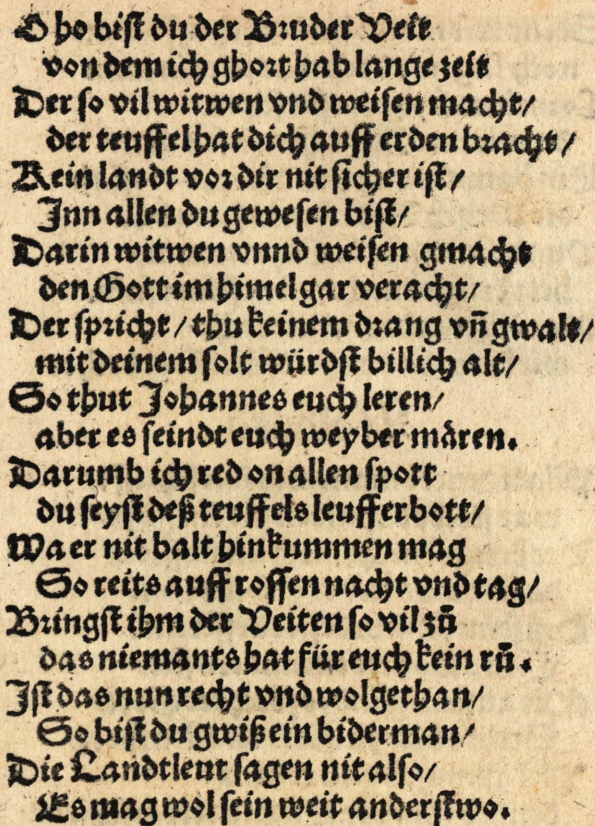 O ho bist du der Bruder Veit
von dem ich ghort hab lange zeit
Der so vil witwen vnd weisen macht/
der teuffel hat dich auff erden bracht/
Kein landt vor dir nit sicher ist/
Inn allen du gewesen bist/
Darin witwen vnnd weisen gmacht
den Gott im himel gar veracht/
Der spricht/thu keinem drang vñ gwalt/
mit deinem solt würdst billich alt/
So thut Johannes euch leren/
aber es seindt euch weyber mären.
Darumb ich red on allen spott
du seyst deß teuffels leufferbott/
Wa er nit balt hinkummen mag
So reits auff rossen nacht vnd tag/
Bringst ihm der Veiten so vil zů
das niemants hat für euch kein rů.
Ist das nun recht vnd wolgethan/
So bist du gwiß ein biderman/
Die Landtleut sagen nit also/
Es mag wol sein weit anderstwo.